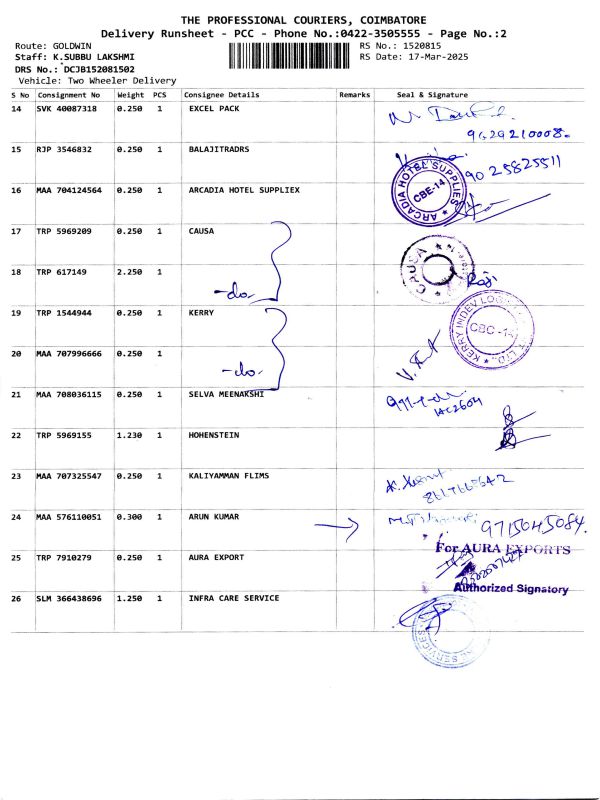 THE PROFESSIONAL COURIERS, COIMBATORE
Delivery Runsheet - PCC - Phone No.:0422-3505555 - Page No.:2
Route: GOLDWIN
Staff: K.SUBBU LAKSHMI
DRS No.: DCJB152081502
Vehicle: Two Wheeler Delivery
RS No.: 1520815
RS Date: 17-Mar-2025
S No Consignment No Weight PCS Consignee Details Remarks Seal & Signature
14 SVK 40087318 0.250 1 EXCEL PACK
9629210008.
15 RJP 3546832 0.250 1 BALAJITRADRS
9025825511
16 MAA 704124564 0.250 1 ARCADIA HOTEL SUPPLIEX
ARCADIA HOTEL SUPPLIES
CBE-14
17 TRP 5969209 0.250 1 CAUSA
CAUSA
18 TRP 617149 2.250 1
-do-
19 TRP 1544944 0.250 1 KERRY
CBC-14
20 MAA 707996666 0.250 1
-do-
21 MAA 708036115 0.250 1 SELVA MEENAKSHI
22 TRP 5969155 1.230 1 HOHENSTEIN
23 MAA 707325547 0.250 1 KALIYAMMAN FLIMS
24 MAA 576110051 0.300 1 ARUN KUMAR
9715045084.
25 TRP 7910279 0.250 1 AURA EXPORT
For AURA EXPORTS
Authorized Signatory
26 SLM 366438696 1.250 1 INFRA CARE SERVICE